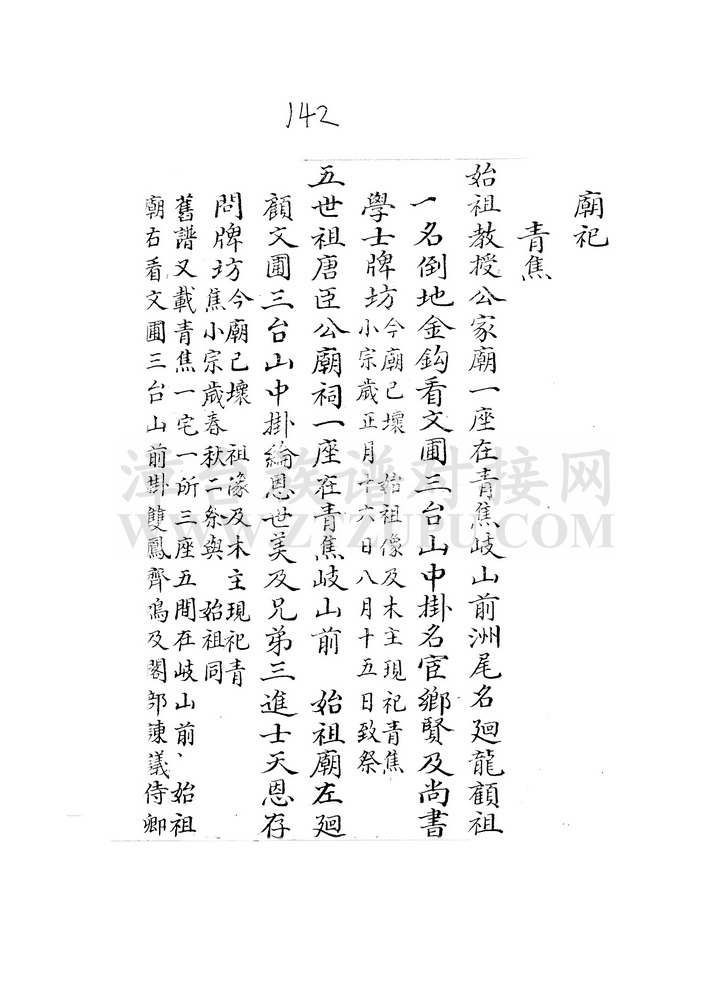 142
廟祀
青焦
始祖教授公家廟一座在青焦岐山前洲尾名廻龍顧祖
一名倒地金鈎看文圃三台山中掛名宦鄉賢及尚書
學士牌坊
今廟已壞 始祖像及木主現祀青焦
小宗歲正月十六日八月十五日致祭
五世祖唐臣公廟祠一座在青焦岐山前 始祖廟左廻
顧文圃三台山中掛綸恩世美及兄弟三進士天恩存
問牌坊
今廟已壞 祖像及木主現祀青
焦小宗歲春秋二祭與 始祖同
舊譜又載青焦一宅一所三座五間在岐山前、始祖
廟右看文圃三台山前掛雙鳳齊鳴及閣部諫議侍卿
漳台族谱对接网
WWW.ZTZUPU.COM